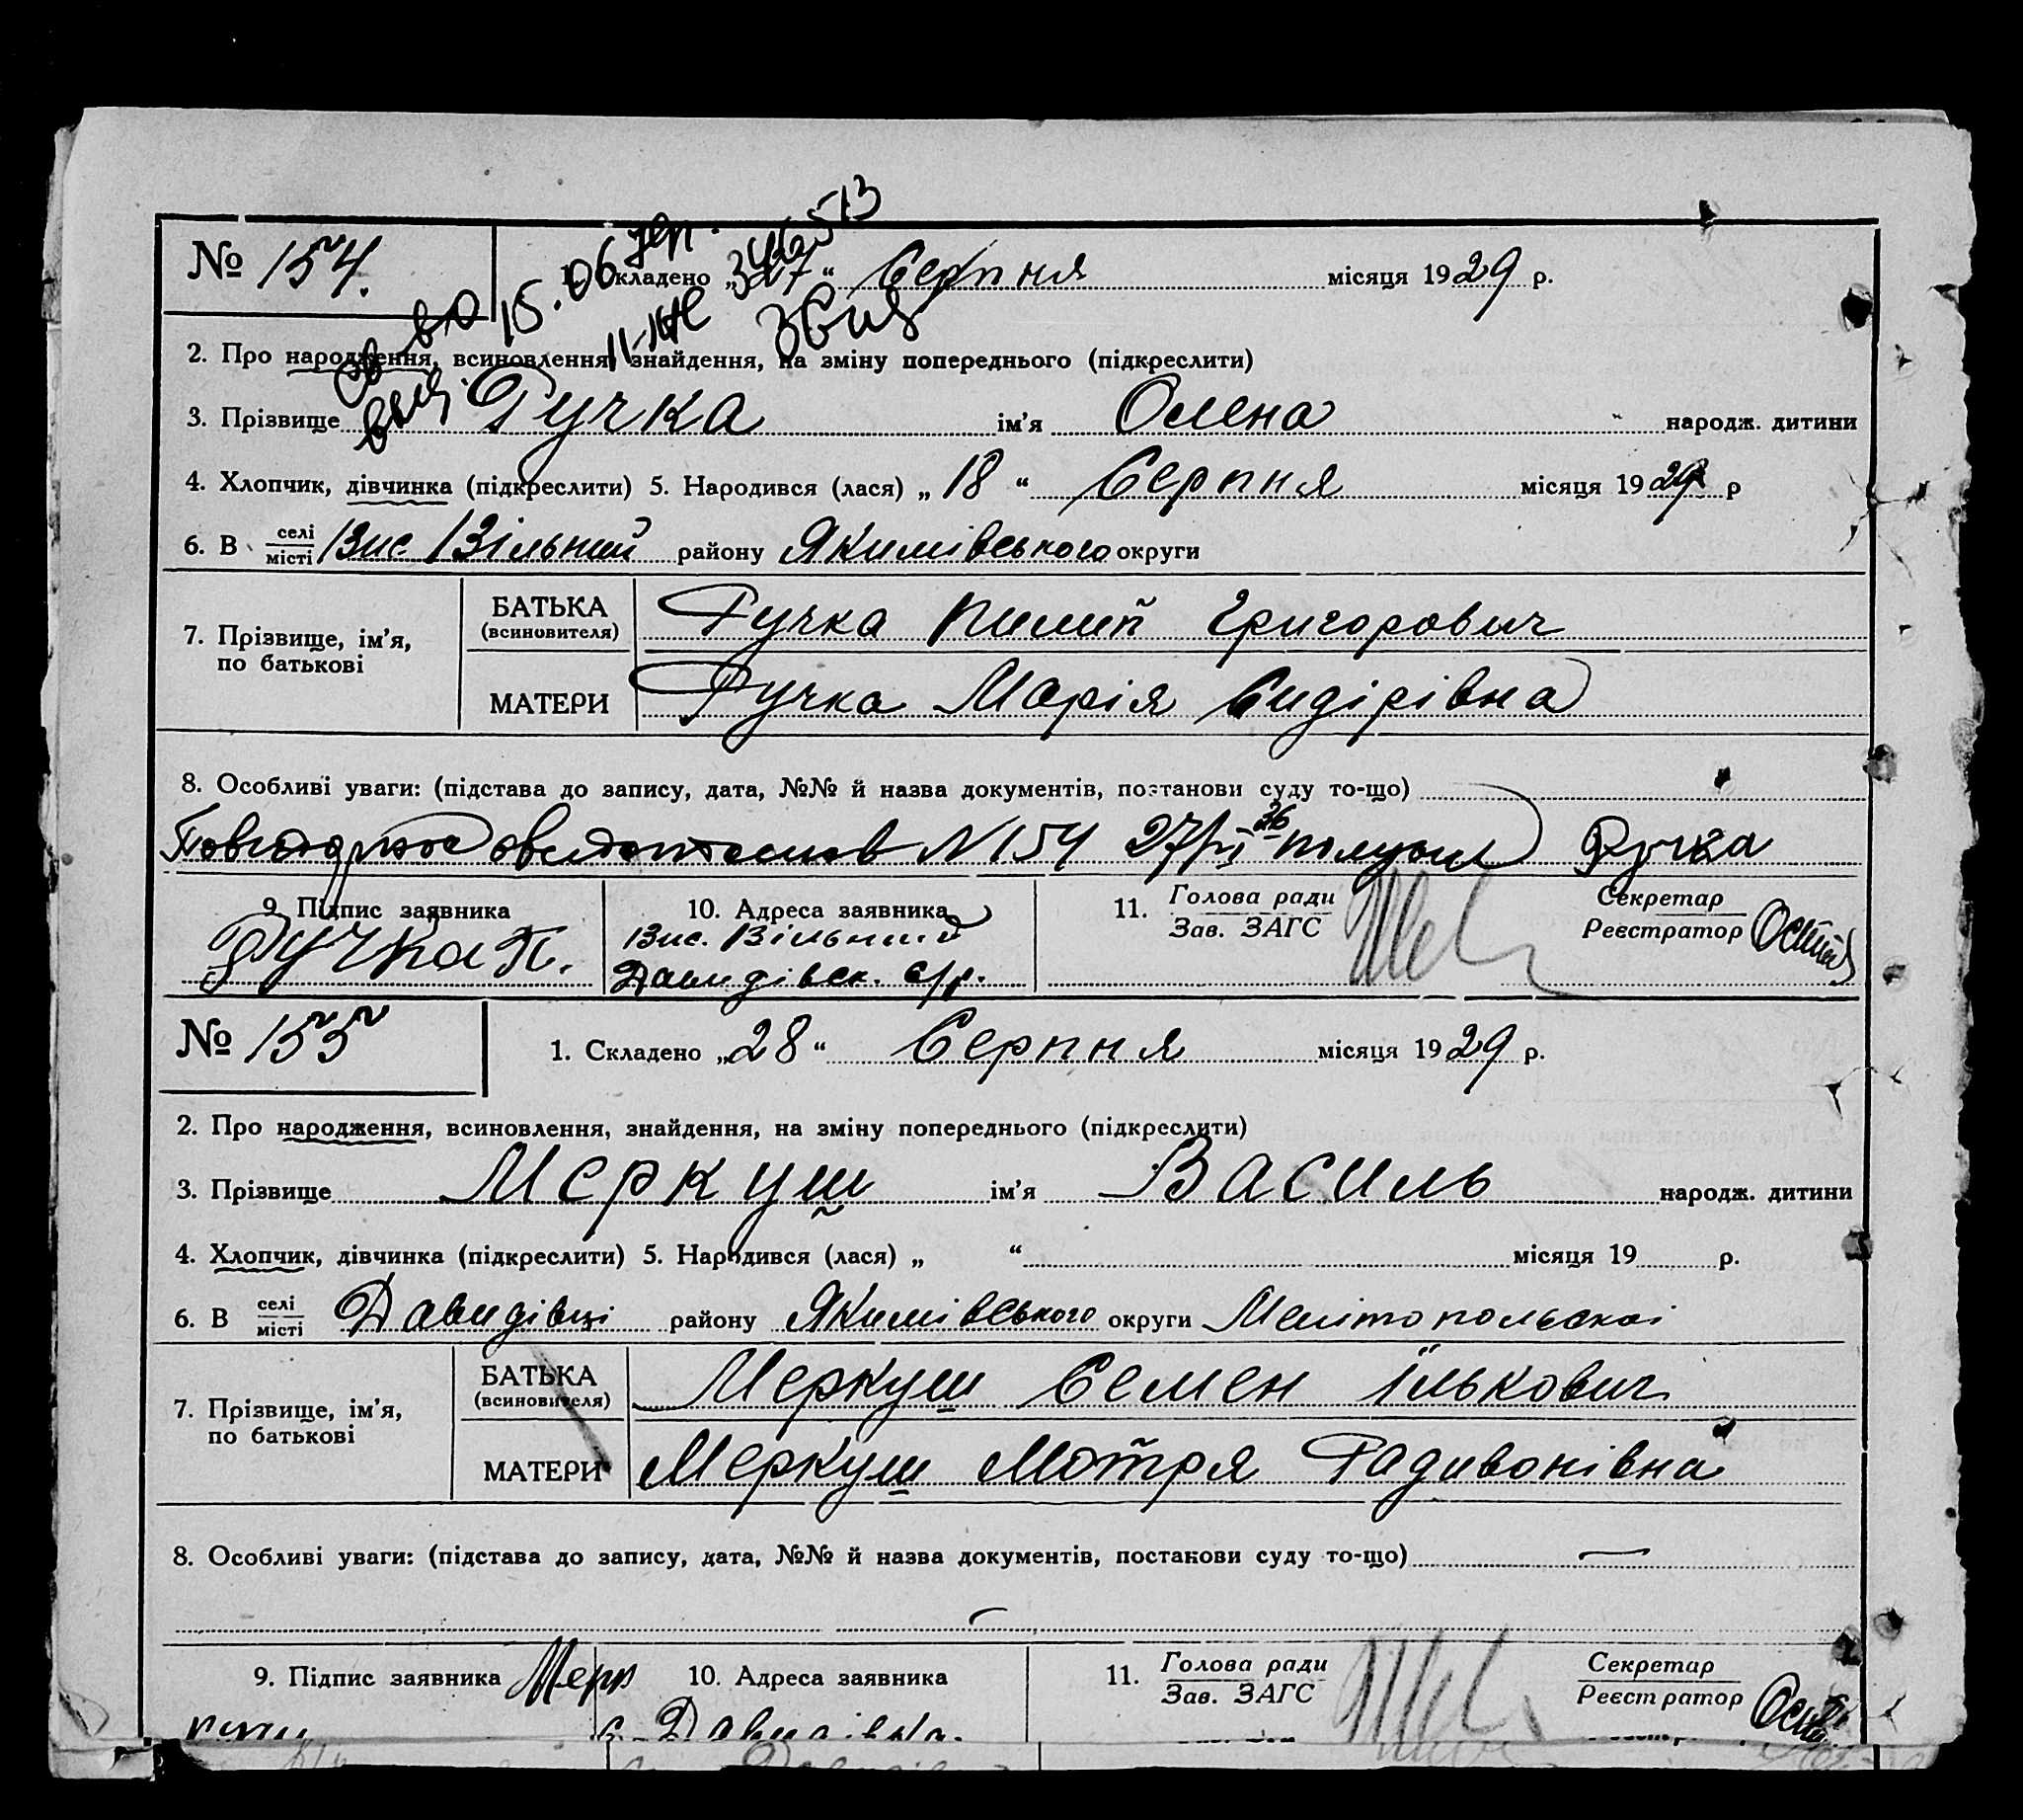 № 154. 1. Складено „27“ Серпня місяця 1929 р.
2. Про народження, всиновлення, знайдення, на зміну попереднього (підкреслити)
3. Прізвище Ручка ім'я Олена народж. дитини
4. Хлопчик, дівчинка (підкреслити) 5. Народився (лася) „18“ Серпня місяця 1929 р
6. В селі місті Вис. Вільний району Якимівського округи
7. Прізвище, ім'я, по батькові
БАТЬКА (всиновителя) Ручка Пилип Григорович
МАТЕРИ Ручка Марія Сидірівна
8. Особливі уваги: (підстава до запису, дата, №№ й назва документів, постанови суду то-що)
N 154 Ручка
9. Підпис заявника 10. Адреса заявника 11. Голова ради Зав. ЗАГС Секретар Реєстратор
Ручка П. Вис. Вільний
Давидівск. с/р.
№ 155 1. Складено „28“ Серпня місяця 1929 р.
2. Про народження, всиновлення, знайдення, на зміну попереднього (підкреслити)
3. Прізвище Меркуш ім'я Василь народж. дитини
4. Хлопчик, дівчинка (підкреслити) 5. Народився (лася) „ “ місяця 19 р.
6. В селі місті Давидівці району Якимівського округи Мелітопольскої
7. Прізвище, ім'я, по батькові
БАТЬКА (всиновителя) Меркуш Семен Ількович
МАТЕРИ Меркуш Мотря Радивонівна
8. Особливі уваги: (підстава до запису, дата, №№ й назва документів, постанови суду то-що) —
9. Підпис заявника Мерк 10. Адреса заявника 11. Голова ради Зав. ЗАГС Секретар Реєстратор
с. Давидівка.